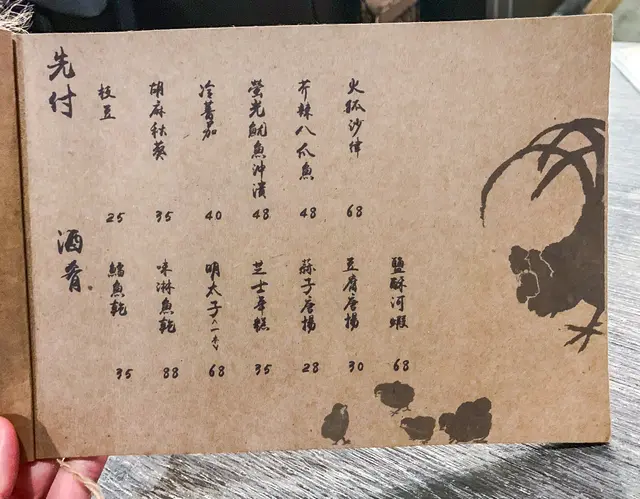 先付
枝豆 25
胡麻秋葵 35
冷蕃茄 40
螢光魷魚沖漬 48
芥辣八爪魚 48
火狐沙律 68
酒肴
鱈魚乾 35
味淋魚乾 88
明太子(一本) 68
芝士年糕 35
蒜子唐揚 28
豆腐唐揚 30
鹽酥河蝦 68